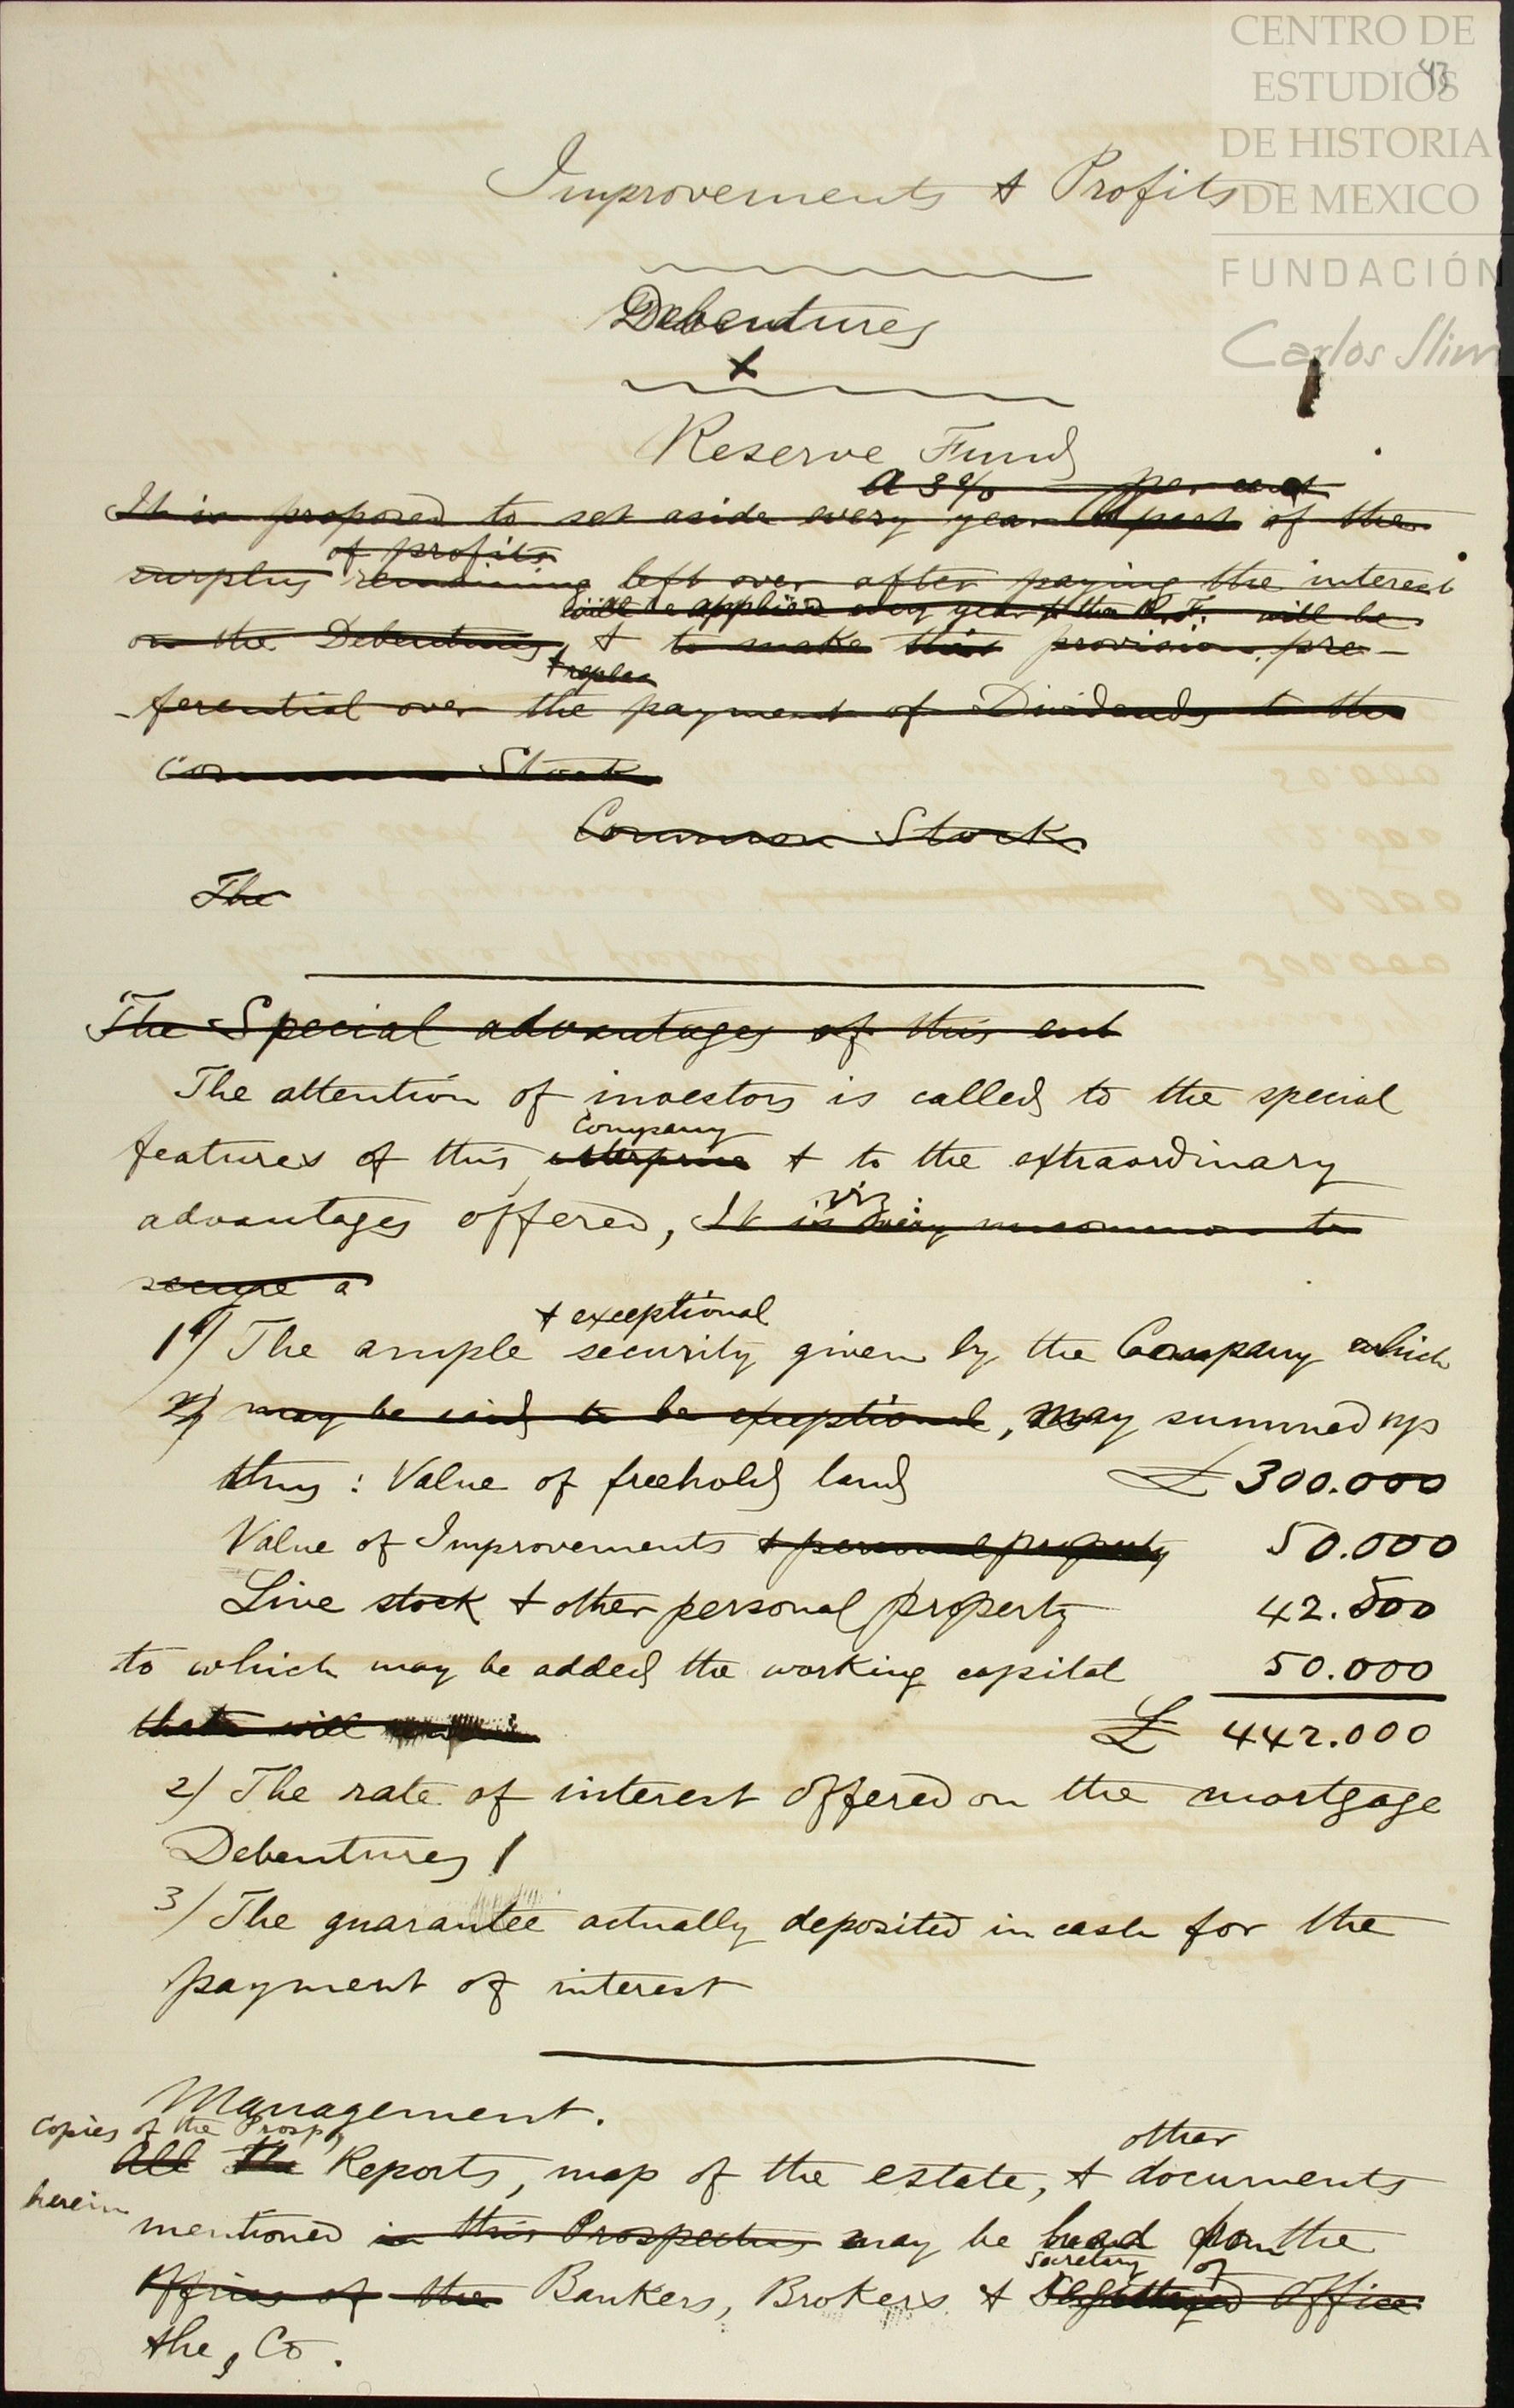 CENTRO DE
ESTUDIOS
DE HISTORIA
DE MEXICO
FUNDACIÓN
Carlos Slim
43
Improvements & Profits
Debentures
x
Reserve Fund
a 3% per cent
It is proposed to set aside every year part of the
of profits
surplus remaining left over after paying the interest
will be applied every year to the R. F. will be
on the Debentures, & to make this provision pre-
& replac
-ferential over the payment of Dividends to the
Common Stock
Common Stock
The
The Special advantages of this ent
The attention of investors is called to the special
Company
features of this enterprise & to the extraordinary
viz
advantages offered, It is very uncommon to
secure a
& exceptional
1) The ample security given by the Company which
2) may be said to be exceptional, may summed up
thus: Value of freehold land £ 300.000
Value of Improvements & personal property 50.000
Live stock & other personal property 42.500
to which may be added the working capital 50.000
that will
£ 442.000
2) The rate of interest offered on the mortgage
Debentures
3) The guarantee actually deposited in cash for the
payment of interest
Management.
Copies of the Prosp,
other
All the Reports, map of the estate, & documents
herein
mentioned in this Prospectus may be had from the
Secretary of
Offices of the Bankers, Brokers & Office
the, Co.